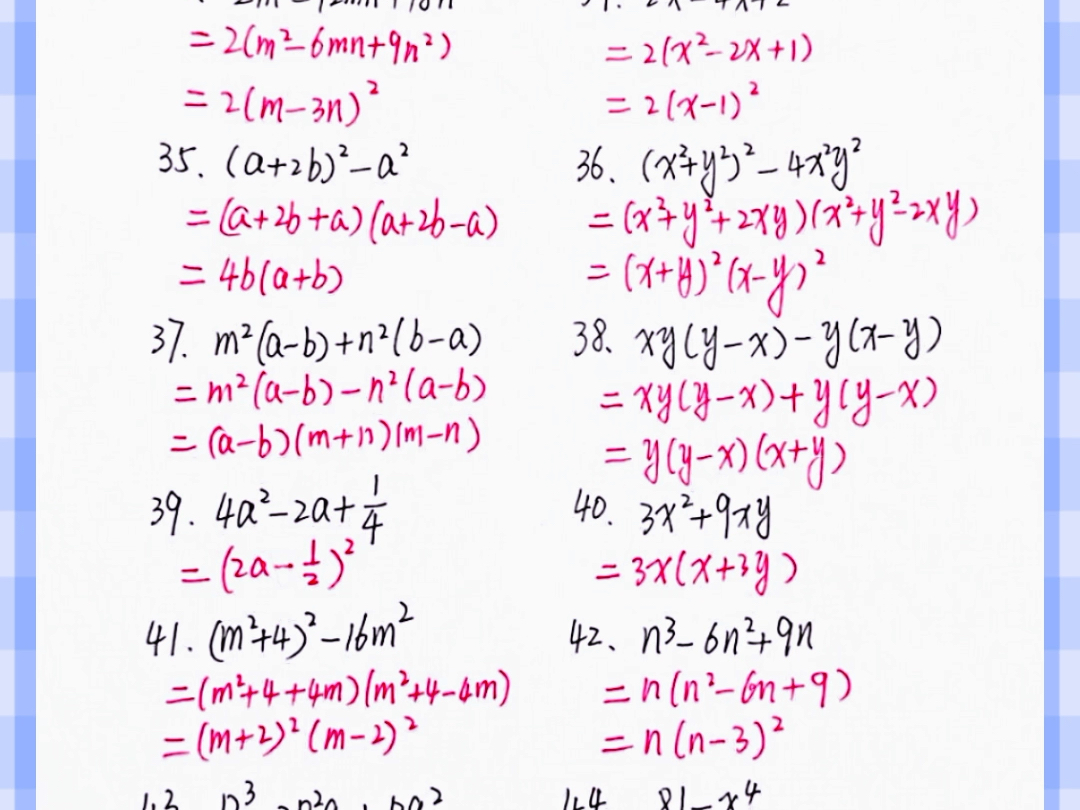 = 2(m²-6mn+9n²)
= 2(m-3n)²
= 2(x²-2x+1)
= 2(x-1)²
35. (a+2b)²-a²
= (a+2b+a)(a+2b-a)
= 4b(a+b)
36. (x²+y²)²-4x²y²
= (x²+y²+2xy)(x²+y²-2xy)
= (x+y)²(x-y)²
37. m²(a-b)+n²(b-a)
= m²(a-b)-n²(a-b)
= (a-b)(m+n)(m-n)
38. xy(y-x)-y(x-y)
= xy(y-x)+y(y-x)
= y(y-x)(x+y)
39. 4a²-2a+1/4
= (2a-1/2)²
40. 3x²+9xy
= 3x(x+3y)
41. (m²+4)²-16m²
= (m²+4+4m)(m²+4-4m)
= (m+2)²(m-2)²
42. n³-6n²+9n
= n(n²-6n+9)
= n(n-3)²
44. 81-x⁴